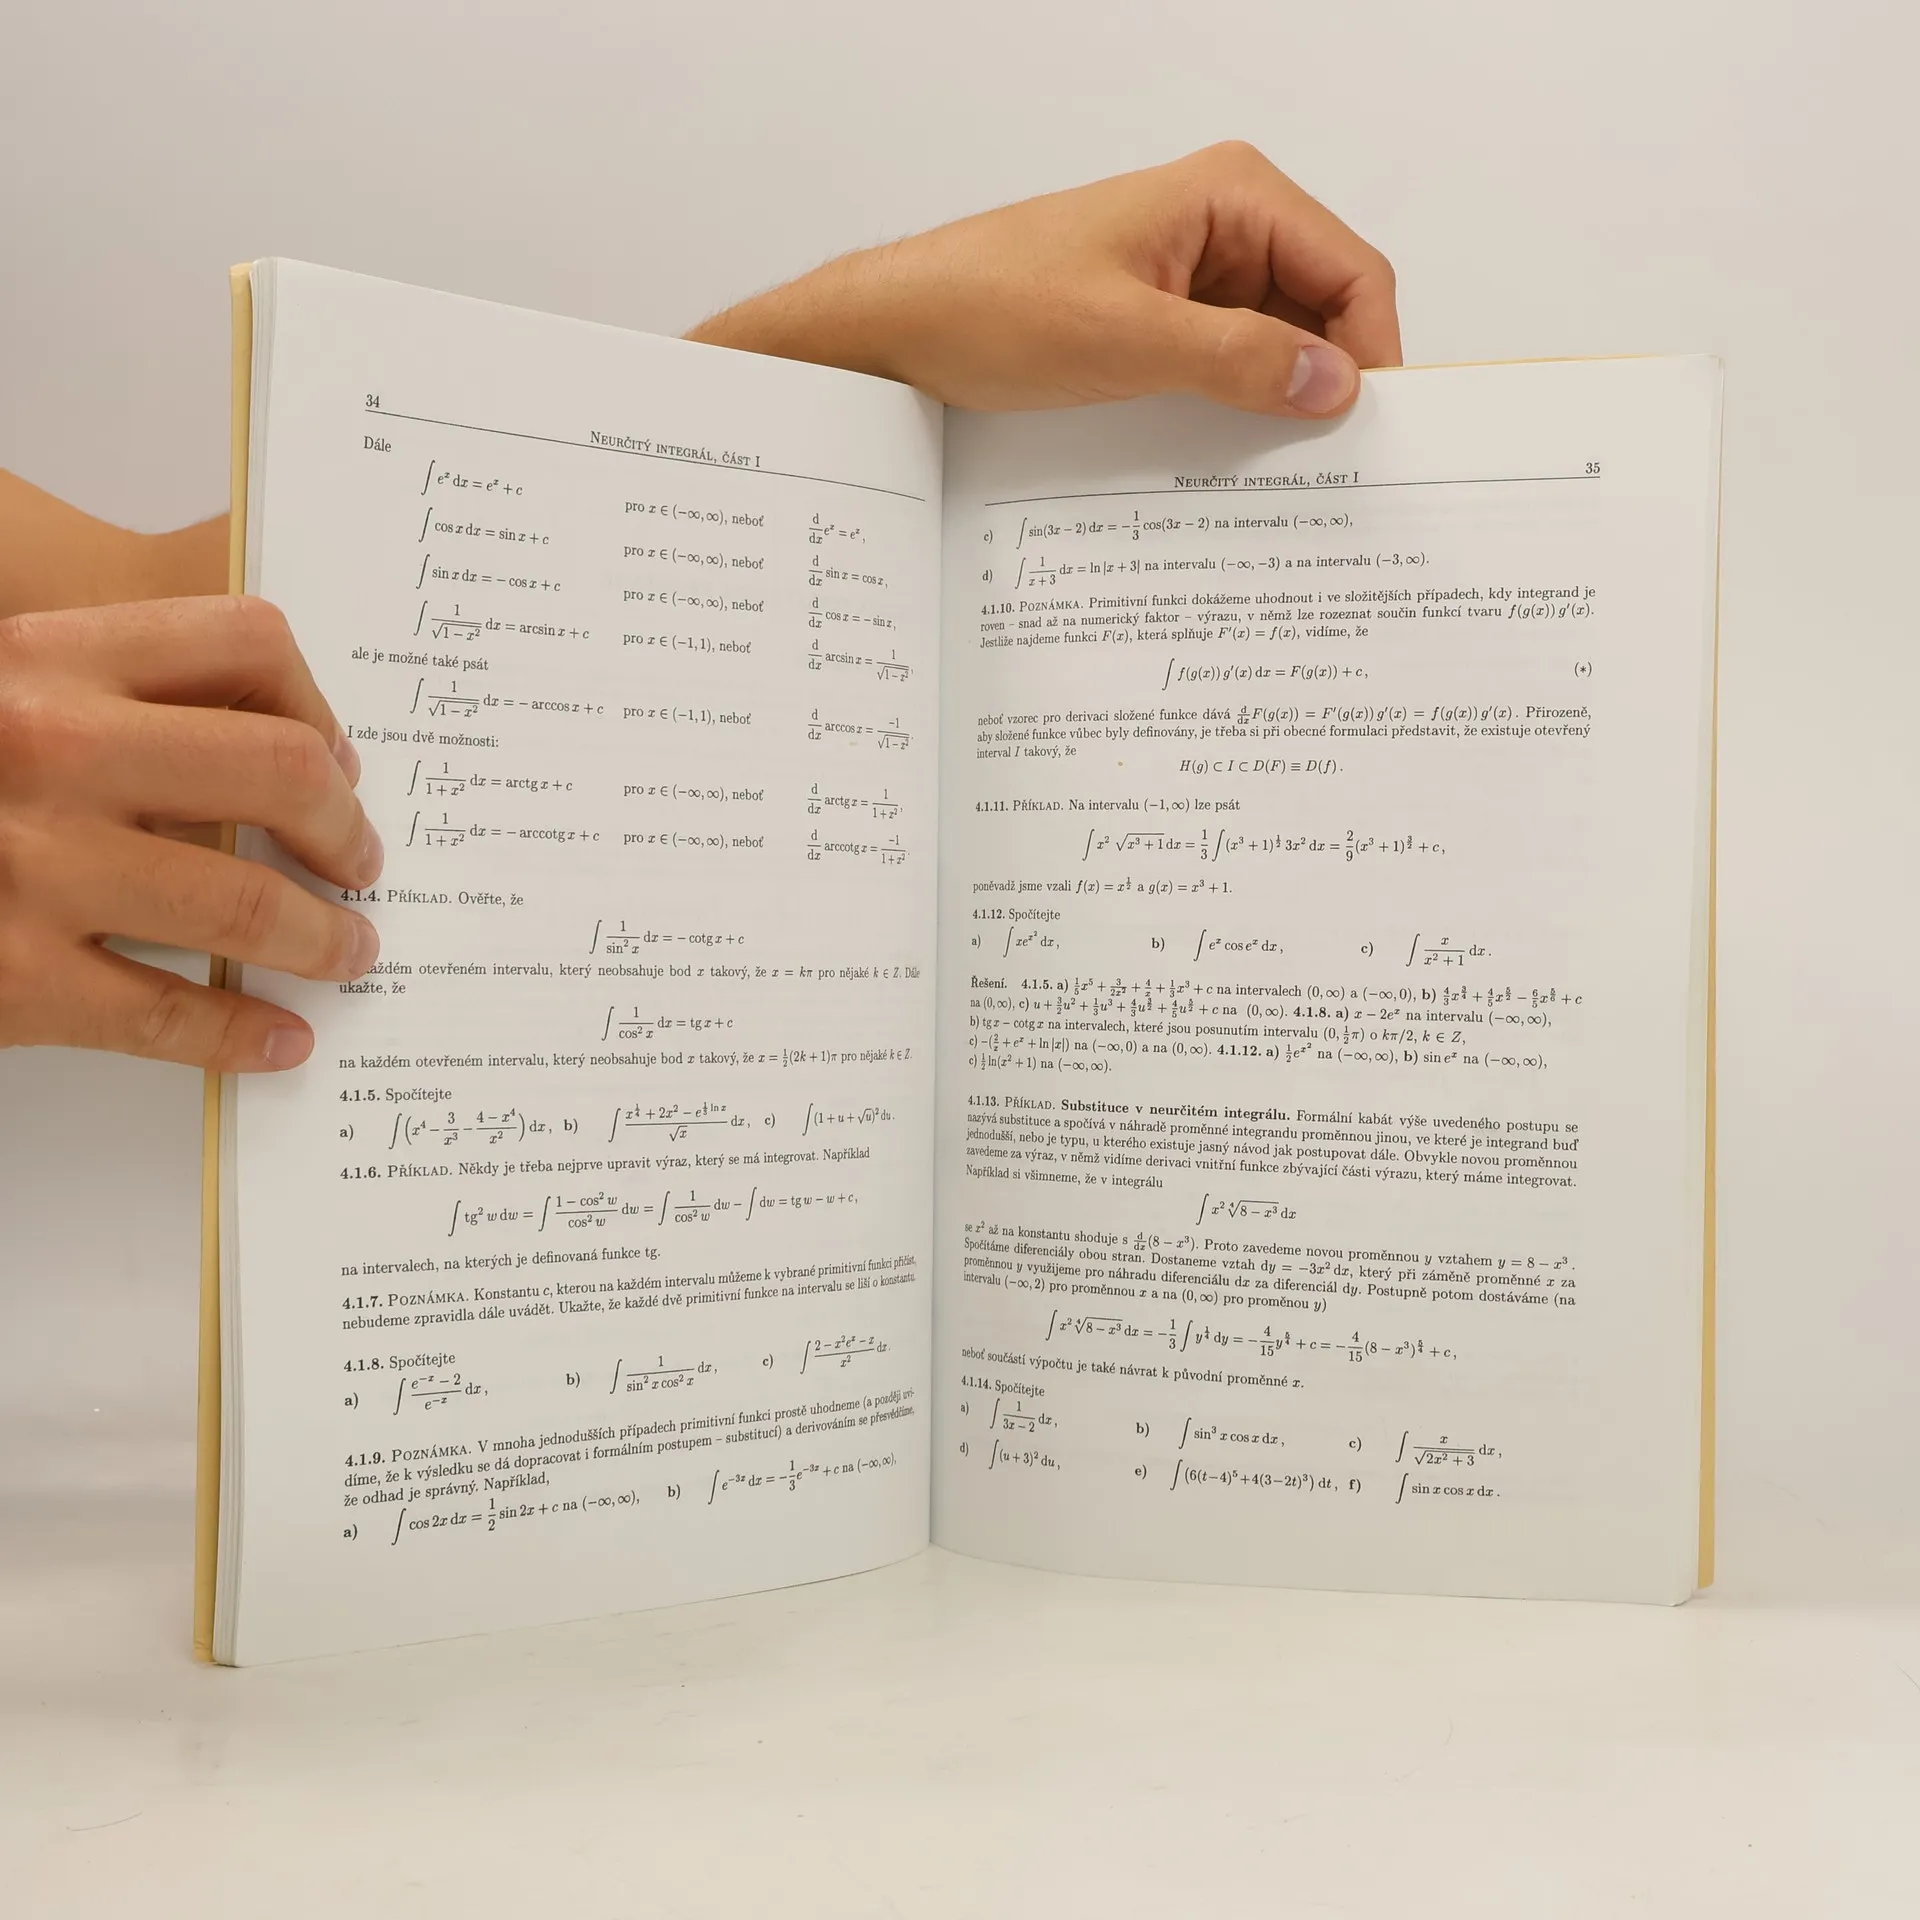 34
NEURČITÝ INTEGRÁL, ČÁST I
Dále
∫ e^x dx = e^x + c pro x ∈ (−∞, ∞), neboť d/dx e^x = e^x,
∫ cos x dx = sin x + c pro x ∈ (−∞, ∞), neboť d/dx sin x = cos x,
∫ sin x dx = − cos x + c pro x ∈ (−∞, ∞), neboť d/dx cos x = − sin x,
∫ 1/√(1 − x²) dx = arcsin x + c pro x ∈ (−1, 1), neboť d/dx arcsin x = 1/√(1 − x²),
ale je možné také psát
∫ 1/√(1 − x²) dx = − arccos x + c pro x ∈ (−1, 1), neboť d/dx arccos x = −1/√(1 − x²).
I zde jsou dvě možnosti:
∫ 1/(1 + x²) dx = arctg x + c pro x ∈ (−∞, ∞), neboť d/dx arctg x = 1/(1 + x²),
∫ 1/(1 + x²) dx = − arccotg x + c pro x ∈ (−∞, ∞), neboť d/dx arccotg x = −1/(1 + x²).
4.1.4. PŘÍKLAD. Ověřte, že
∫ 1/sin² x dx = − cotg x + c
každém otevřeném intervalu, který neobsahuje bod x takový, že x = kπ pro nějaké k ∈ Z. Dále
ukažte, že
∫ 1/cos² x dx = tg x + c
na každém otevřeném intervalu, který neobsahuje bod x takový, že x = ½(2k + 1)π pro nějaké k ∈ Z.
4.1.5. Spočítejte
a) ∫ (x⁴ − 3/x³ − (4 − x⁴)/x²) dx, b) ∫ (x^(1/4) + 2x² − e^(1/3 ln x))/√x dx, c) ∫ (1 + u + √u)² du.
4.1.6. PŘÍKLAD. Někdy je třeba nejprve upravit výraz, který se má integrovat. Například
∫ tg² w dw = ∫ (1 − cos² w)/cos² w dw = ∫ 1/cos² w dw − ∫ dw = tg w − w + c,
na intervalech, na kterých je definovaná funkce tg.
4.1.7. POZNÁMKA. Konstantu c, kterou na každém intervalu můžeme k vybrané primitivní funkci přičíst,
nebudeme zpravidla dále uvádět. Ukažte, že každé dvě primitivní funkce na intervalu se liší o konstantu.
4.1.8. Spočítejte
a) ∫ (e^−x − 2)/e^−x dx, b) ∫ 1/(sin² x cos² x) dx, c) ∫ (2 − x²e^x − x)/x² dx.
4.1.9. POZNÁMKA. V mnoha jednodušších případech primitivní funkci prostě uhodneme (a později uvi-
díme, že k výsledku se dá dopracovat i formálním postupem – substitucí) a derivováním se přesvědčíme,
že odhad je správný. Například,
a) ∫ cos 2x dx = 1/2 sin 2x + c na (−∞, ∞), b) ∫ e^−3x dx = −1/3 e^−3x + c na (−∞, ∞),
NEURČITÝ INTEGRÁL, ČÁST I
35
c) ∫ sin(3x − 2) dx = −1/3 cos(3x − 2) na intervalu (−∞, ∞),
d) ∫ 1/(x + 3) dx = ln |x + 3| na intervalu (−∞, −3) a na intervalu (−3, ∞).
4.1.10. POZNÁMKA. Primitivní funkci dokážeme uhodnout i ve složitějších případech, kdy integrand je
roven – snad až na numerický faktor – výrazu, v němž lze rozeznat součin funkcí tvaru f(g(x)) g′(x).
Jestliže najdeme funkci F(x), která splňuje F′(x) = f(x), vidíme, že
∫ f(g(x)) g′(x) dx = F(g(x)) + c, (∗)
neboť vzorec pro derivaci složené funkce dává d/dx F(g(x)) = F′(g(x)) g′(x) = f(g(x)) g′(x). Přirozeně,
aby složené funkce vůbec byly definovány, je třeba si při obecné formulaci představit, že existuje otevřený
interval I takový, že
H(g) ⊂ I ⊂ D(F) ≡ D(f).
4.1.11. PŘÍKLAD. Na intervalu (−1, ∞) lze psát
∫ x² √(x³ + 1) dx = 1/3 ∫ (x³ + 1)^(1/2) 3x² dx = 2/9 (x³ + 1)^(3/2) + c,
poněvadž jsme vzali f(x) = x^(1/2) a g(x) = x³ + 1.
4.1.12. Spočítejte
a) ∫ xe^(x²) dx, b) ∫ e^x cos e^x dx, c) ∫ x/(x² + 1) dx.
Řešení. 4.1.5. a) 1/5 x⁵ + 3/(2x²) + 4/x + 1/3 x³ + c na intervalech (0, ∞) a (−∞, 0), b)
na (0, ∞), c) 4.1.8. a) x − 2e^x na intervalu (−∞, ∞),
b) tg x − cotg x na intervalech, které jsou posunutím intervalu (0, ½π) o kπ/2, k ∈ Z,
c) −(2/x + e^x + ln |x|) na (−∞, 0) a na (0, ∞). 4.1.12. a) ½e^(x²) na (−∞, ∞), b) sin e^x na (−∞, ∞),
c) ½ ln(x² + 1) na (−∞, ∞).
4.1.13. PŘÍKLAD. Substituce v neurčitém integrálu. Formální kabát výše uvedeného postupu se
nazývá substituce a spočívá v náhradě proměnné integrandu proměnnou jinou, ve které je integrand buď
jednodušší, nebo je typu, u kterého existuje jasný návod jak postupovat dále. Obvykle novou proměnnou
zavedeme za výraz, v němž vidíme derivaci vnitřní funkce zbývající části výrazu, který máme integrovat.
Například si všimneme, že v integrálu
∫ x² ⁴√(8 − x³) dx
se x² až na konstantu shoduje s d/dx (8 − x³). Proto zavedeme novou proměnnou y vztahem y = 8 − x³.
Spočítáme diferenciály obou stran. Dostaneme vztah dy = −3x² dx, který při záměně proměnné x za
proměnnou y využijeme pro náhradu diferenciálu dx za diferenciál dy. Postupně potom dostáváme (na
intervalu (−∞, 2) pro proměnnou x a na (0, ∞) pro proměnou y)
∫ x² ⁴√(8 − x³) dx = −1/3 ∫ y^(1/4) dy = −4/15 y^(5/4) + c = −4/15 (8 − x³)^(5/4) + c,
neboť součástí výpočtu je také návrat k původní proměnné x.
4.1.14. Spočítejte
a) ∫ 1/(3x − 2) dx, b) ∫ sin³ x cos x dx, c) ∫ x/√(2x² + 3) dx,
d) ∫ (u + 3)² du, e) ∫ (6(t − 4)⁵ + 4(3 − 2t)³) dt, f) ∫ sin x cos x dx.